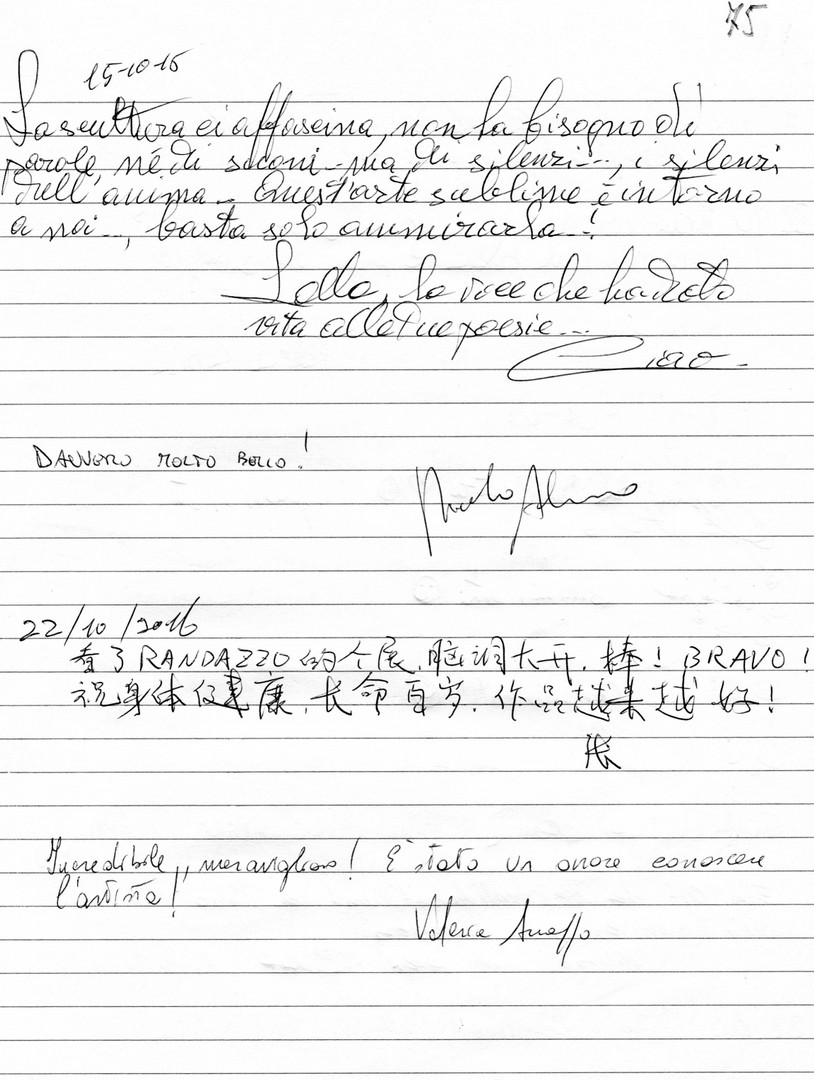 75
15-10-16
La scultura ci affascina, non ha bisogno di
parole, né di suoni - ma di silenzi..., i silenzi
dell'anima - Quest'arte sublime è intorno
a noi..., basta solo ammirarla..!
Lalla, la voce che ha dato
vita alle tue poesie...
Ciao -
DAVVERO MOLTO BELLO!
22/10/2016
看了RANDAZZO的个展,脑洞大开,棒! BRAVO!
祝身体健康,长命百岁,作品越来越好!
张
Incredibile, meraviglioso! È stato un onore conoscere
l'artista!
Valeria